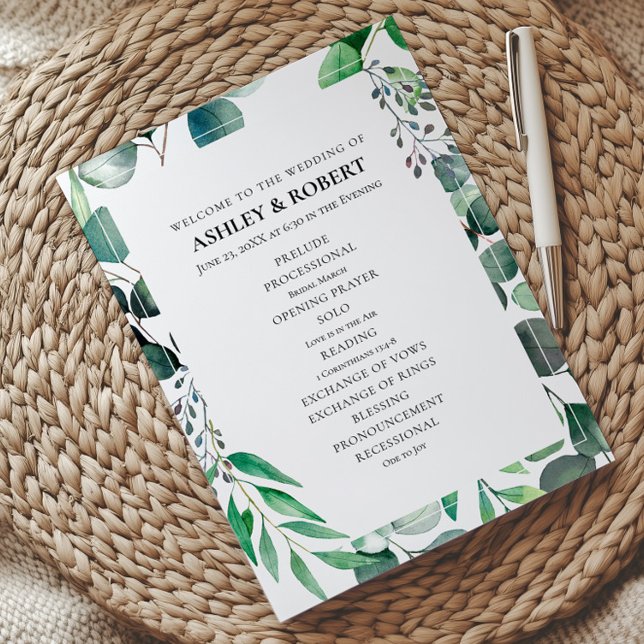 WELCOME TO THE WEDDING OF
ASHLEY & ROBERT
JUNE 23, 20XX AT 6:30 IN THE EVENING
PRELUDE
PROCESSIONAL
BRIDAL MARCH
OPENING PRAYER
SOLO
LOVE IS IN THE AIR
READING
1 CORINTHIANS 13:4-8
EXCHANGE OF VOWS
EXCHANGE OF RINGS
BLESSING
PRONOUNCEMENT
RECESSIONAL
ODE TO JOY